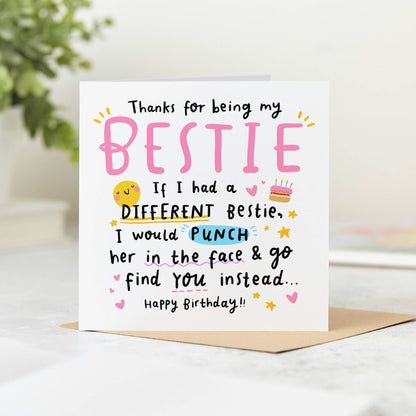 Thanks for being my
BESTIE
If I had a
DIFFERENT Bestie,
I would PUNCH
her in the face & go
find YOU instead...
Happy Birthday!!